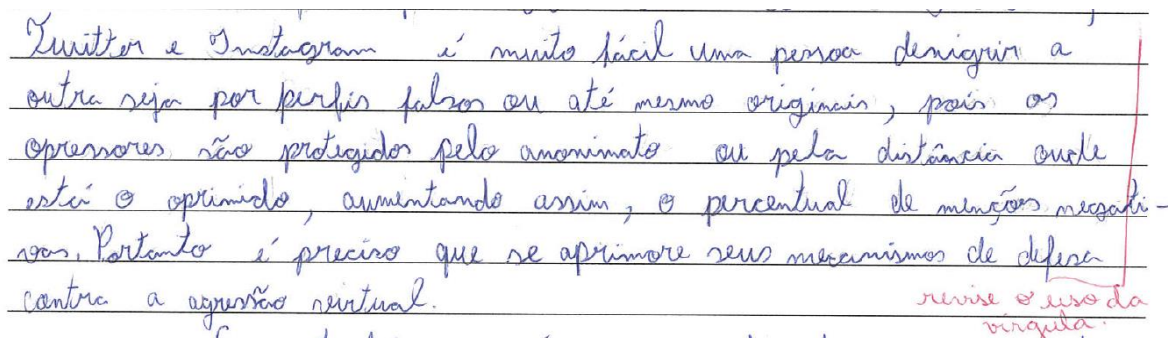 Twitter e Instagram é muito fácil uma pessoa denigrir a
outra seja por perfis falsos ou até mesmo originais, pois os
opressores são protegidos pelo anonimato ou pela distância onde
está o oprimido, aumentando assim, o percentual de menções negati-
vas. Portanto é preciso que se aprimore seus mecanismos de defesa
contra a agressão virtual.
revise o uso da
vírgula.